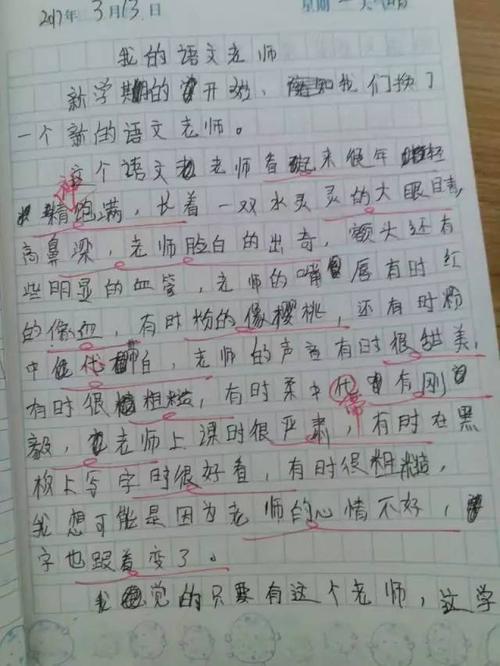 2017年 3月13日 星期一 天气晴
我的语文老师
新学期的开班，得知我们换了
一个新的语文老师。
这个语文老师看起来很年轻
精神饱满，长着一双水灵灵的大眼睛
高鼻梁，老师脸白的出奇，额头还有
些明显的血管，老师的嘴唇有时红
的像血，有时粉的像樱桃，还有时粉
中代白，老师的声音有时很甜美，
有时很粗糙，有时柔中代有刚
带
毅，老师上课时很严肃，有时在黑
板上写字时很好看，有时很粗糙，
我想可能是因为老师的心情不好，
字也跟着变了。
我觉的只要有这个老师，这学